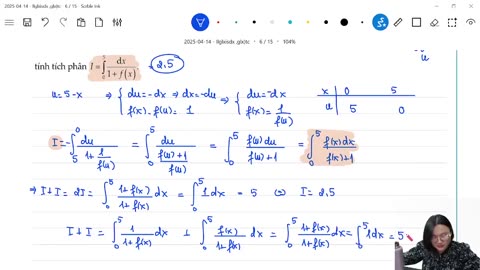 2025-04-14 - llglsisdx_glqtc · 6 / 15 - Scrble Ink
2025-04-14 - llglsisdx_glqtc · 6 / 15 · 104%
u
tính tích phân I = ∫₀⁵ dx / (1 + f(x)). 2,5
u = 5 - x ⇒ { du = -dx ⇒ dx = -du ⇒ { du = -dx x 0 5
f(x) . f(u) = 1 f(x) = 1/f(u) u 5 0
I = -∫₅⁰ du / (1 + 1/f(u)) = ∫₀⁵ du / ((f(u)+1)/f(u)) = ∫₀⁵ f(u) du / (f(u)+1) = ∫₀⁵ f(x) dx / (f(x)+1)
⇒ I + I = 2I = ∫₀⁵ (1+f(x))/(1+f(x)) dx = ∫₀⁵ 1 dx = 5 ⇔ I = 2,5
I + I = ∫₀⁵ 1/(1+f(x)) dx + ∫₀⁵ f(x)/(1+f(x)) dx = ∫₀⁵ (1+f(x))/(1+f(x)) dx = ∫₀⁵ 1dx = 5